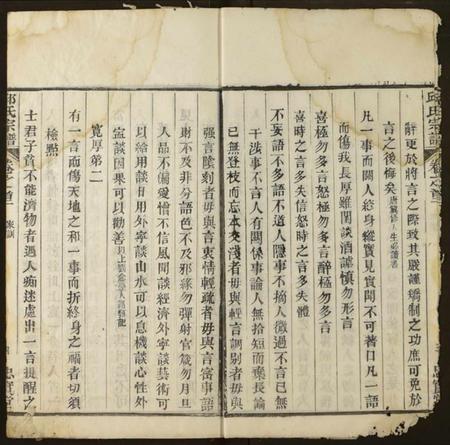 辭更於將言之際致其嚴謹矯制之功庶可免於
言之後悔矣
凡一事而關人終身縱實見實聞不可著口凡一語
而傷我長厚雖閒談酒謔慎勿形言
喜極勿多言怒極勿多言醉極勿多言
喜時之言多失信怒時之言多失體
不妄語不多語不道人隱事不摘人微過不言已無
干涉事不言人有關係事論人無拾短而棄長論
已無登枝而忘本交淺者毋與輕言調別者毋與
強言陰刻者毋與言衷情輕疏者毋與言密事語
財不及非分語色不及邪緣勿彈射官箴勿月旦
人品不偏愛憎不信風聞談經濟外寧談藝術可
以給用談日用外寧談山水可以息機談心性外
寧談因果可以勸善
寬厚第二
有一言而傷天地之和一事而折終身之福者切須
檢點
士君子貧不能濟物者遇人痴迷處出一言提醒之
邱氏宗譜
卷之首
家訓
忠實堂